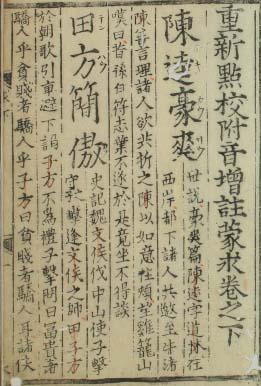 重新點校附音增註蒙求卷之下
陳逵豪爽
世說豪爽篇陳逵字道林在
西岸都下諸人共邀至牛渚
陳善言理諸人欲共折之陳以如意拄頰望雞籠山
嘆曰昔孫伯符志業不遂於此竟坐不得談
田方簡傲
史記魏文侯伐中山使子擊
守之擊逢文侯之師田子方
於朝歌引車避下謁子方不為禮子擊問曰富貴者
驕人乎貧賤者驕人乎子方曰貧賤者驕人耳諸侯